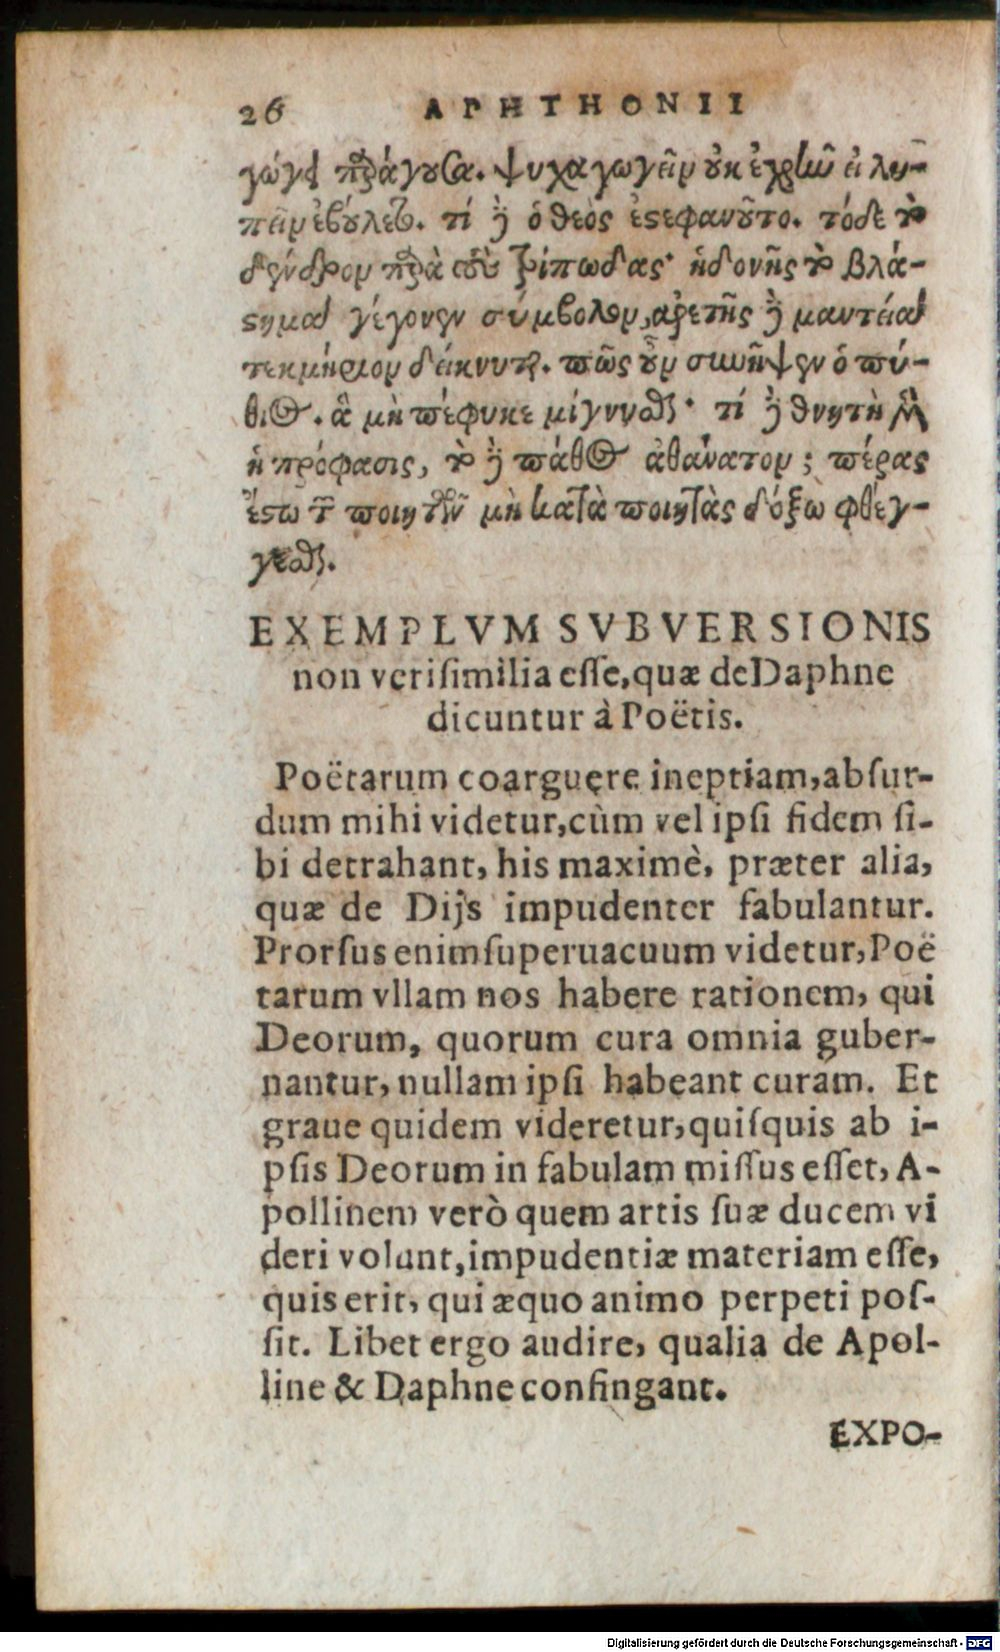 26 APHTHONII
γωγὶ παράγουσα. ψυχαγωγεῖν οὐκ ἐχρῆν εἰ λυ-
πεῖν ἐβούλετο. τί δὲ ὁ θεὸς ἐστεφανοῦτο. τόδε τὸ
δένδρον παρὰ τοὺς τρίποδας· ἡδονῆς τὸ βλά-
στημα γέγονεν σύμβολον, ἀρετῆς δὲ μαντεία
τεκμήριον δείκνυται. πῶς οὖν συνῆψεν ὁ πύ-
θιος. ἃ μὴ πέφυκε μίγνυσθαι· τί δὲ θνητὴ μὲν
ἡ πρόφασις, τὸ δὲ πάθος ἀθάνατον; πέρας
ἔστω τῶν ποιητῶν μὴ κατὰ ποιητὰς δόξω φθέγ-
γεσθαι.
EXEMPLVM SVBVERSIONIS
non verisimilia esse, quæ de Daphne
dicuntur à Poëtis.
Poëtarum coarguere ineptiam, absur-
dum mihi videtur, cùm vel ipsi fidem si-
bi detrahant, his maximè, præter alia,
quæ de Dijs impudenter fabulantur.
Prorsus enim superuacuum videtur, Poë
tarum vllam nos habere rationem, qui
Deorum, quorum cura omnia guber-
nantur, nullam ipsi habeant curam. Et
graue quidem videretur, quisquis ab i-
psis Deorum in fabulam missus esset, A-
pollinem verò quem artis suæ ducem vi
deri volunt, impudentiæ materiam esse,
quis erit, qui æquo animo perpeti pos-
sit. Libet ergo audire, qualia de Apol-
line & Daphne confingant.
EXPO-
Digitalisierung gefördert durch die Deutsche Forschungsgemeinschaft - DFG